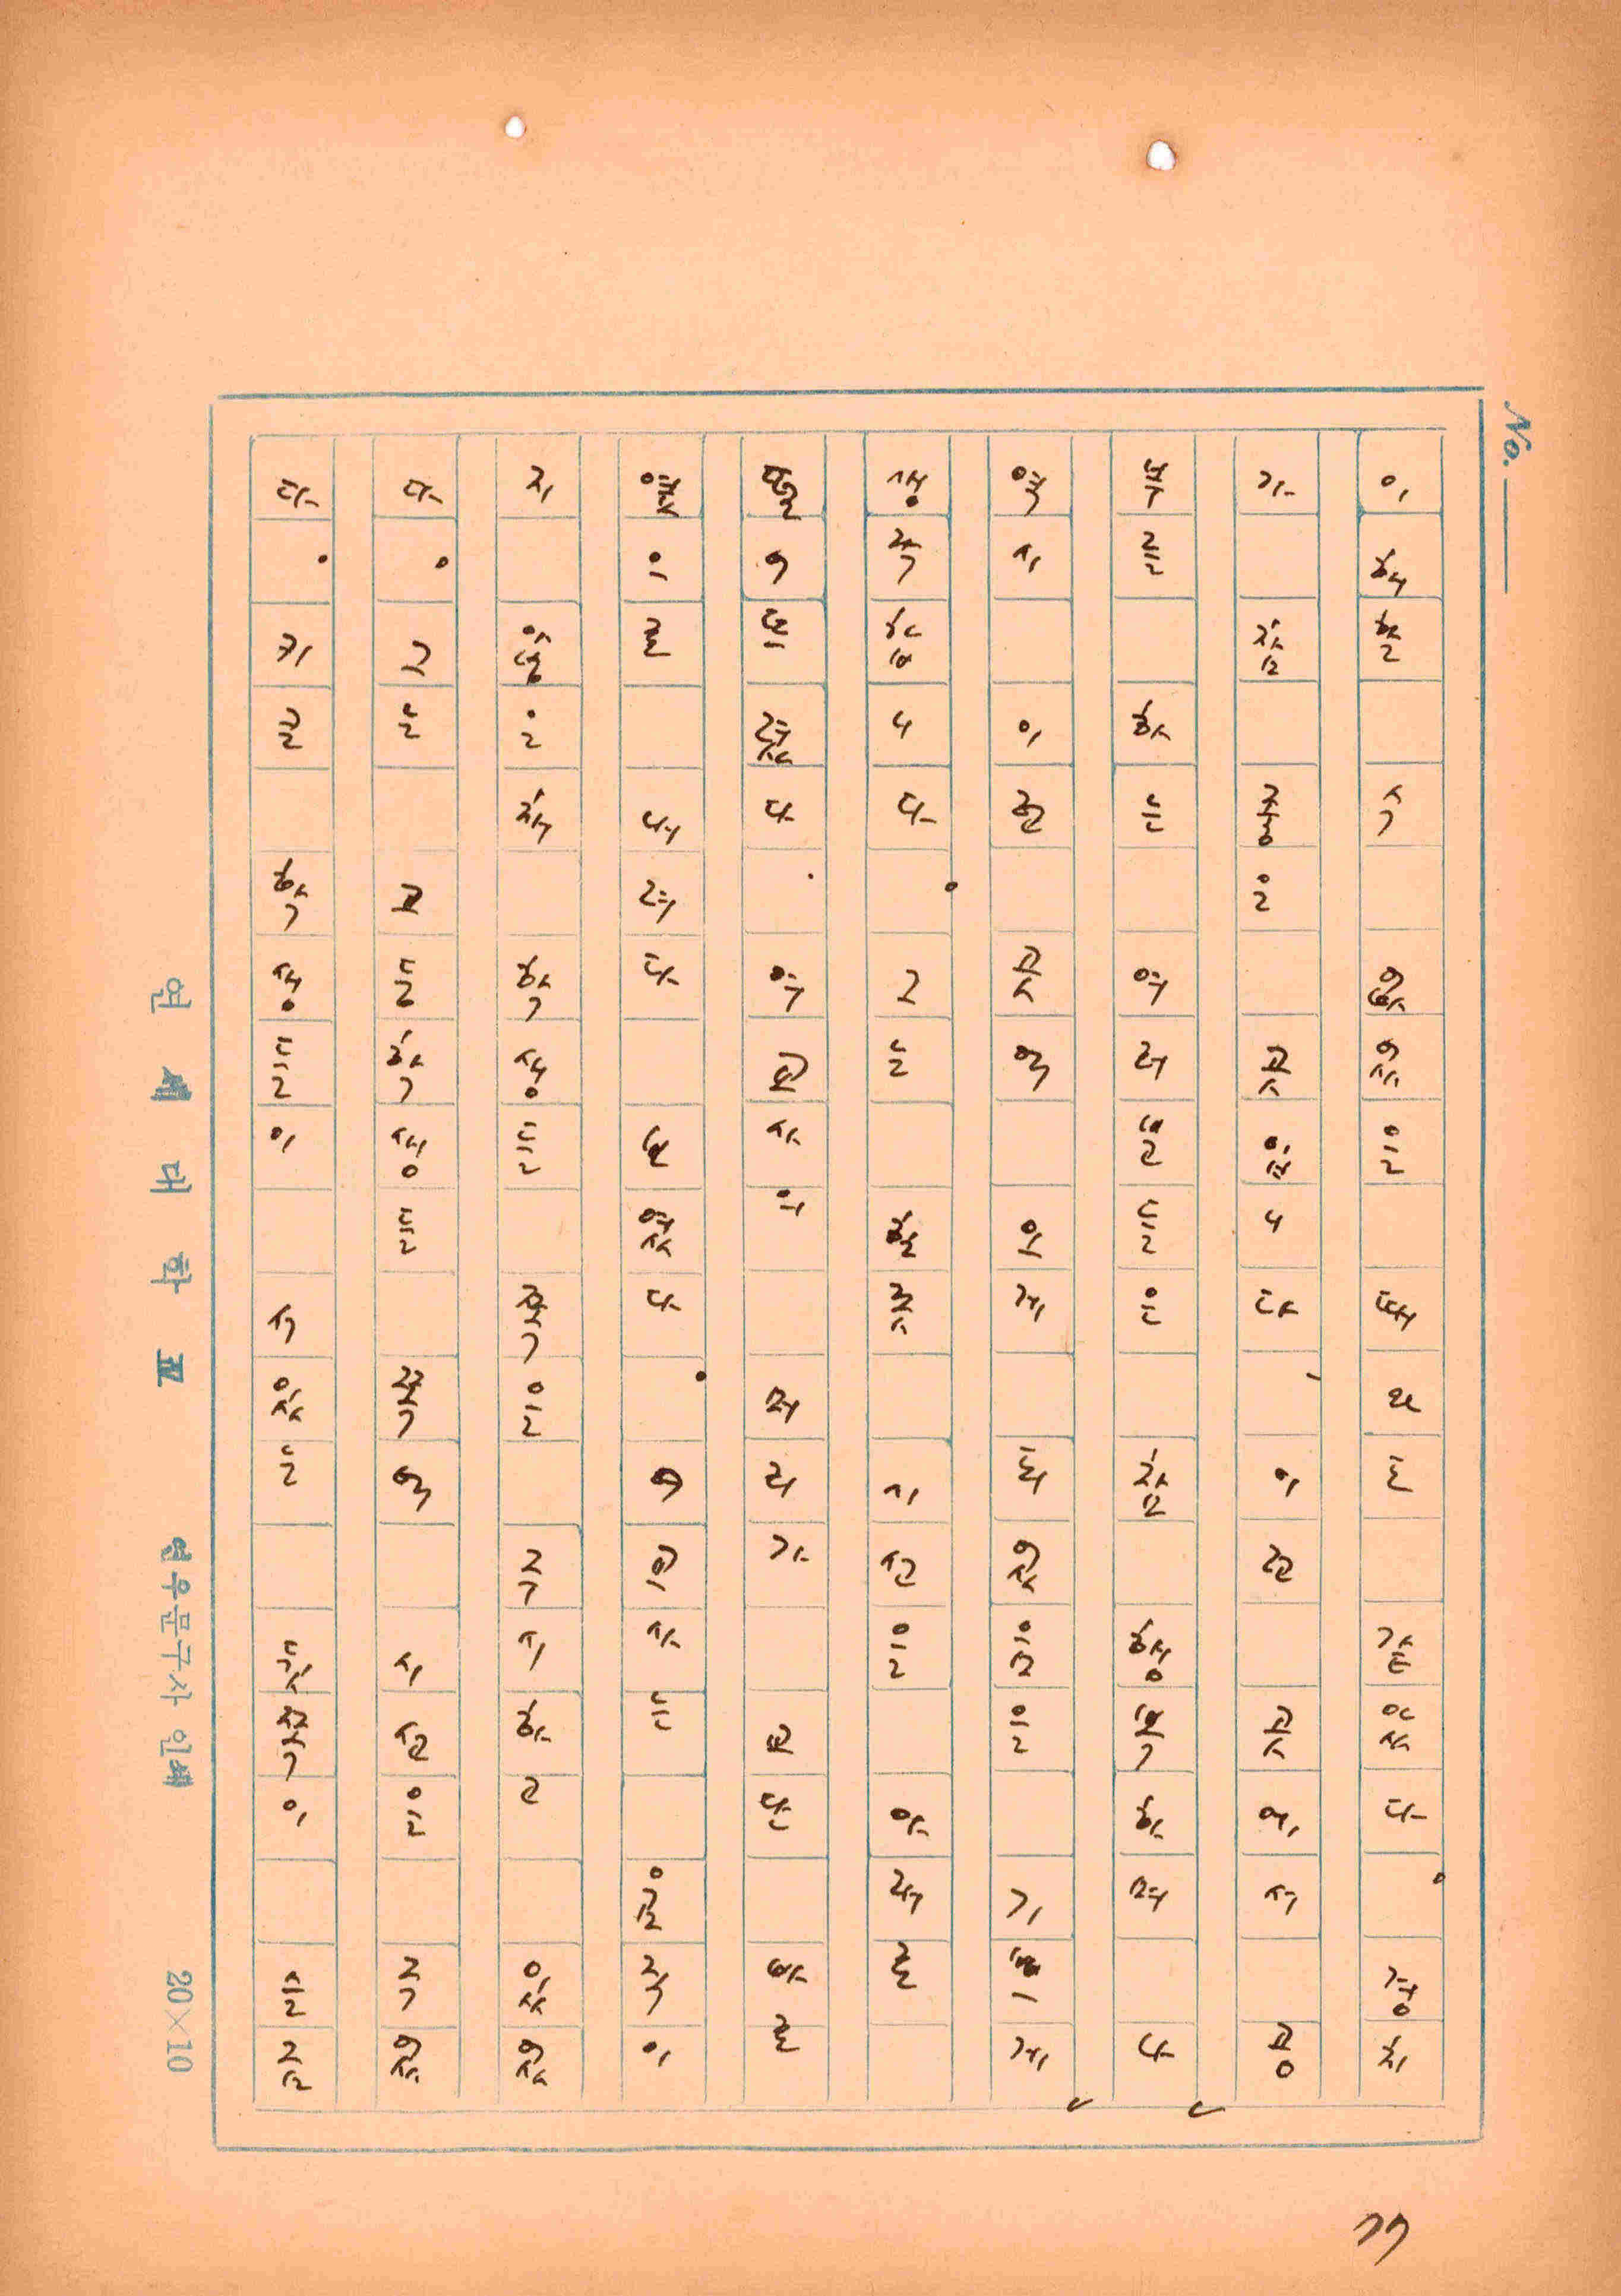 이해할 수 없었을 때와도 같았다。 경치
가 참 좋은 곳입니다, 이런 곳에서 공
부를 하는 여러분들은 참 행복하며 나
역시 이런 곳에 오게 되었음을 기쁘게
생각합니다。 그는 힐끗 시선을 아래로
떨어뜨렸다. 여교사의 머리가 교단 바로
앞으로 내려다 보였다。 여교사는 움직이
지 않은채 학생들 쪽을 주시하고 있었
다。 그는 고등학생들 쪽에 시선을 주었
다。 키큰 학생들이 서있는 뒷쪽이 슬금
No.
연세대학교
연우문구사 인쇄
20×10